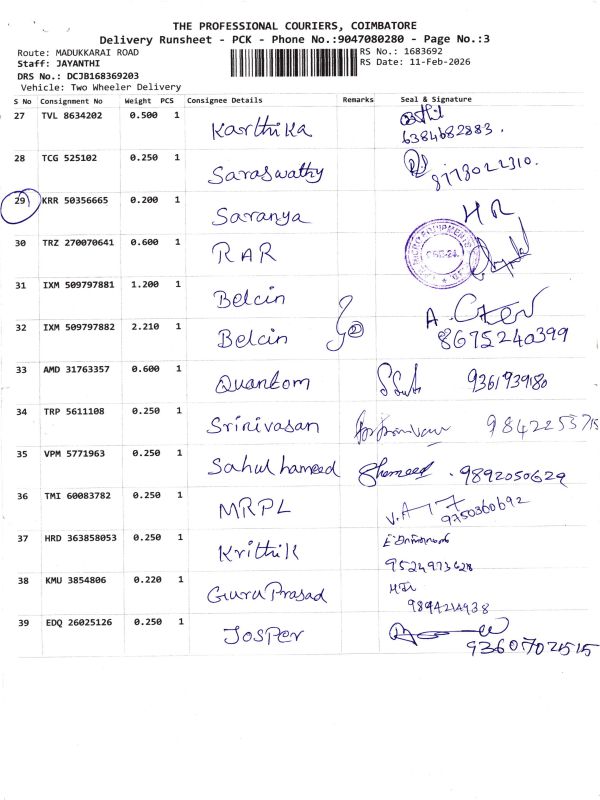 THE PROFESSIONAL COURIERS, COIMBATORE
Delivery Runsheet - PCK - Phone No.:9047080280 - Page No.:3
Route: MADUKKARAI ROAD RS No.: 1683692
Staff: JAYANTHI RS Date: 11-Feb-2026
DRS No.: DCJB168369203
Vehicle: Two Wheeler Delivery
S No Consignment No Weight PCS Consignee Details Remarks Seal & Signature
27 TVL 8634202 0.500 1 Karthika
6384682883.
28 TCG 525102 0.250 1 Saraswathy
8778022310.
29 KRR 50356665 0.200 1 Saranya HR
30 TRZ 270070641 0.600 1 RAR
31 IXM 509797881 1.200 1 Belcin
32 IXM 509797882 2.210 1 Belcin 2 A.
8675240399
33 AMD 31763357 0.600 1 Quantom 9361939180
34 TRP 5611108 0.250 1 Srinivasan 9842255715
35 VPM 5771963 0.250 1 Sahul hameed Shameed . 9892050629
36 TMI 60083782 0.250 1 MRPL
9750360692
37 HRD 363858053 0.250 1 Krithik
9524973628
38 KMU 3854806 0.220 1 Guru Prasad
9894214938
39 EDQ 26025126 0.250 1 Josper